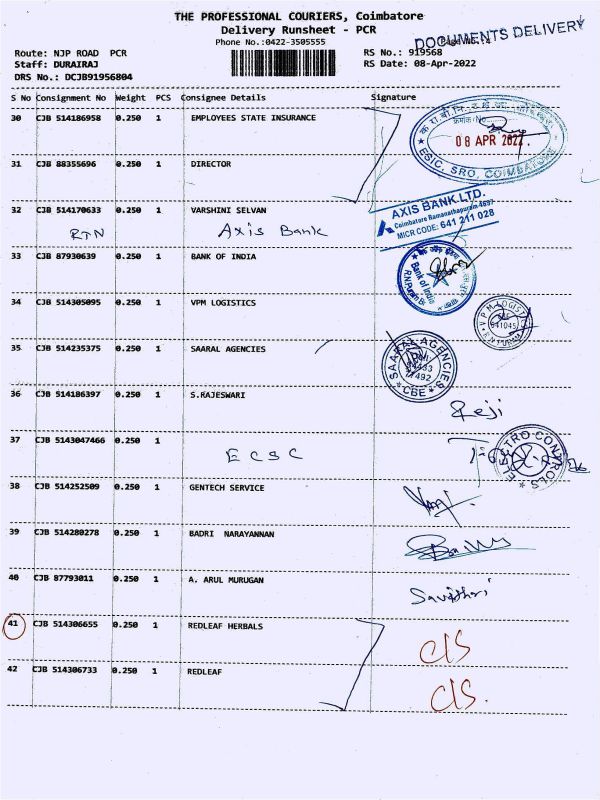 THE PROFESSIONAL COURIERS, Coimbatore
Delivery Runsheet - PCR
DOCUMENTS DELIVERY
Phone No.:0422-3505555
Route: NJP ROAD PCR
RS No.: 919568
Staff: DURAIRAJ
RS Date: 08-Apr-2022
DRS No.: DCJB91956804
S No Consignment No Weight PCS Consignee Details Signature
30 CJB 514186958 0.250 1 EMPLOYEES STATE INSURANCE
08 APR 2022
ESIC, SRO, COIMBATORE
31 CJB 88355696 0.250 1 DIRECTOR
32 CJB 514170633 0.250 1 VARSHINI SELVAN
RTN Axis Bank
AXIS BANK LTD.
Coimbatore Ramanathapuram
MICR CODE: 641 211 028
33 CJB 87930639 0.250 1 BANK OF INDIA
Bank of India
34 CJB 514305095 0.250 1 VPM LOGISTICS
V P M LOGISTICS
641045
35 CJB 514235375 0.250 1 SAARAL AGENCIES
SAARAL AGENCIES
CBE
36 CJB 514186397 0.250 1 S.RAJESWARI
Reji
37 CJB 5143047466 0.250 1
ECSC
ELECTRO CONTROLS
38 CJB 514252509 0.250 1 GENTECH SERVICE
39 CJB 514280278 0.250 1 BADRI NARAYANNAN
40 CJB 87793011 0.250 1 A. ARUL MURUGAN
Savithri
41 CJB 514306655 0.250 1 REDLEAF HERBALS
C/S
42 CJB 514306733 0.250 1 REDLEAF
C/S.